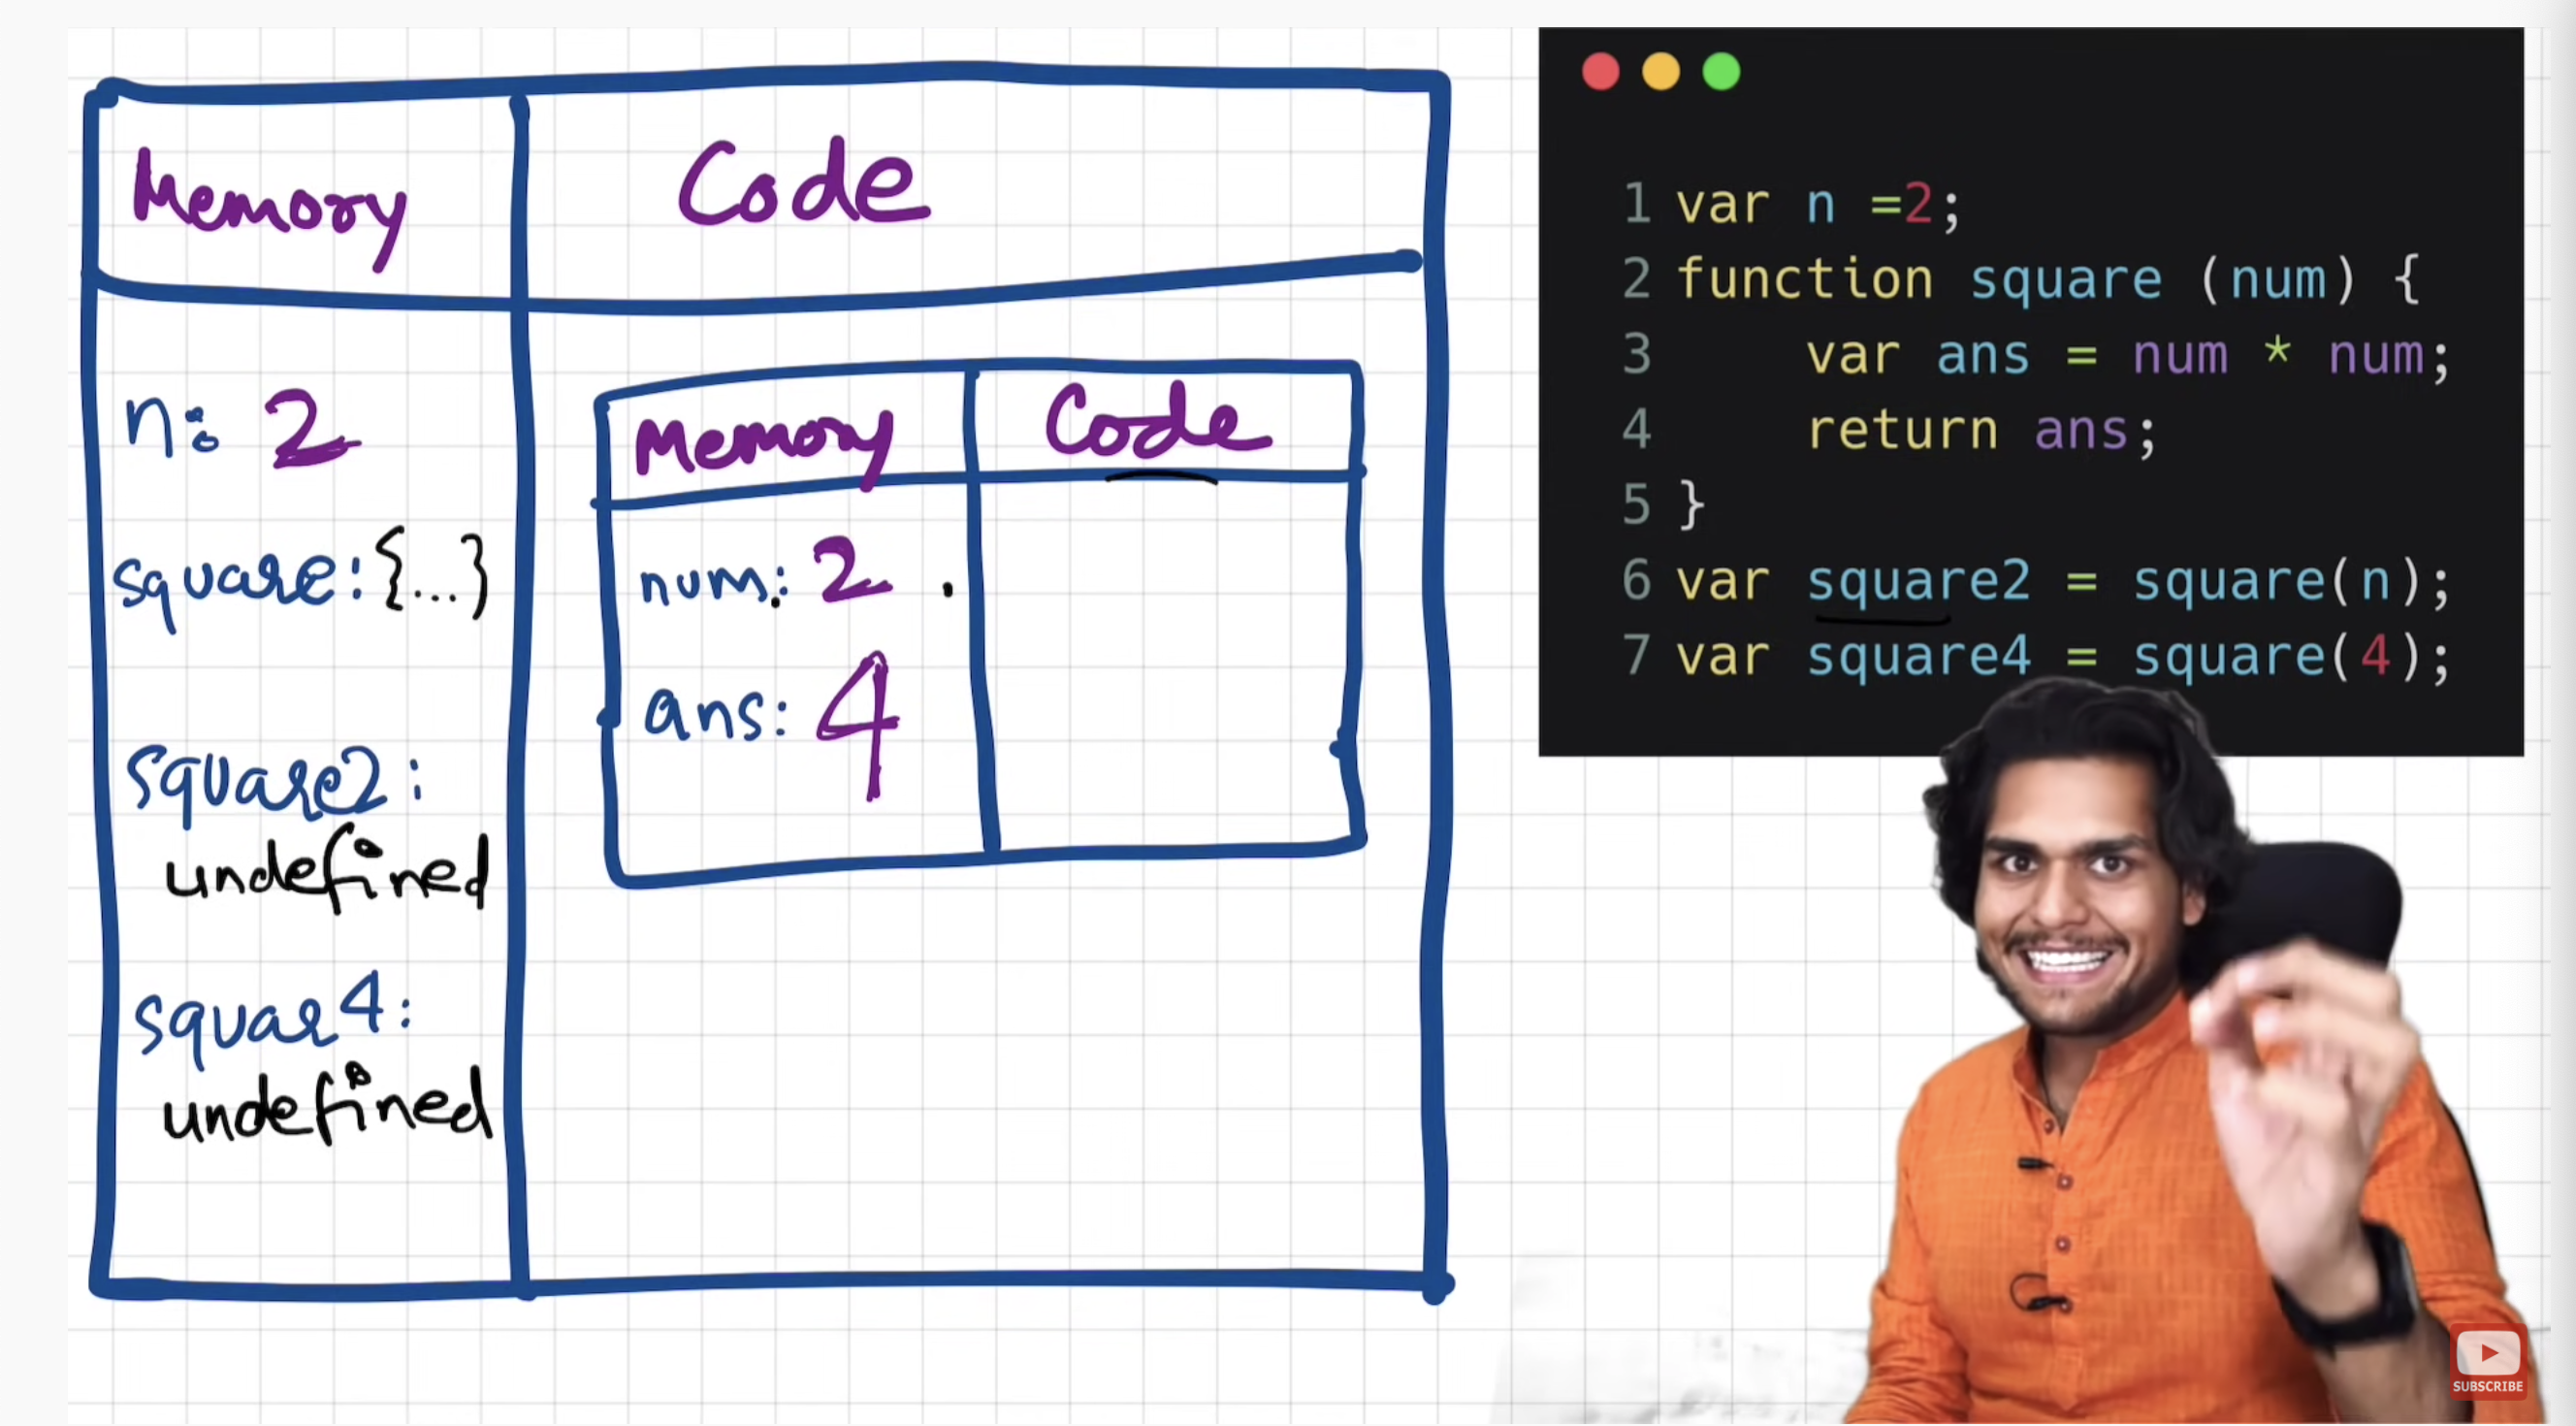 Memory
Code
n: 2
square: {...}
square2:
undefined
squar4:
undefined
Memory
Code
num: 2
ans: 4
1 var n =2;
2 function square (num) {
3 var ans = num * num;
4 return ans;
5 }
6 var square2 = square(n);
7 var square4 = square(4);
SUBSCRIBE